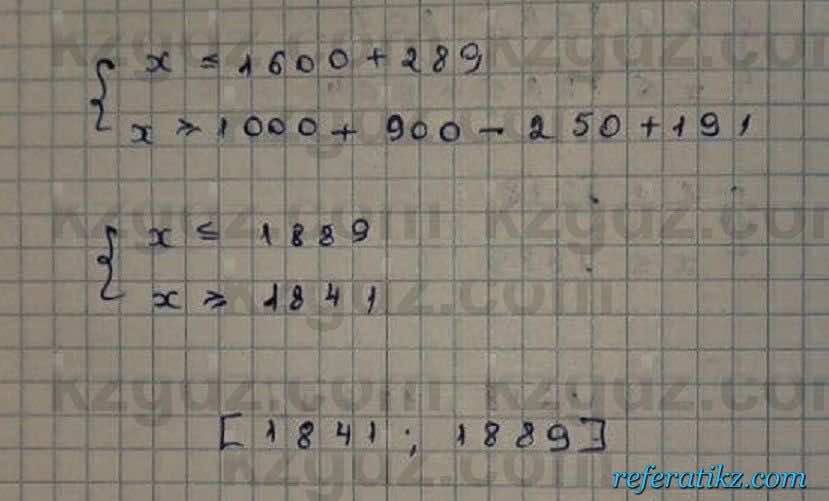 x ≤ 1600 + 289
x ≥ 1000 + 900 - 250 + 191
x ≤ 1889
x ≥ 1841
[1841; 1889]
kzgdz.com
referatikz.com